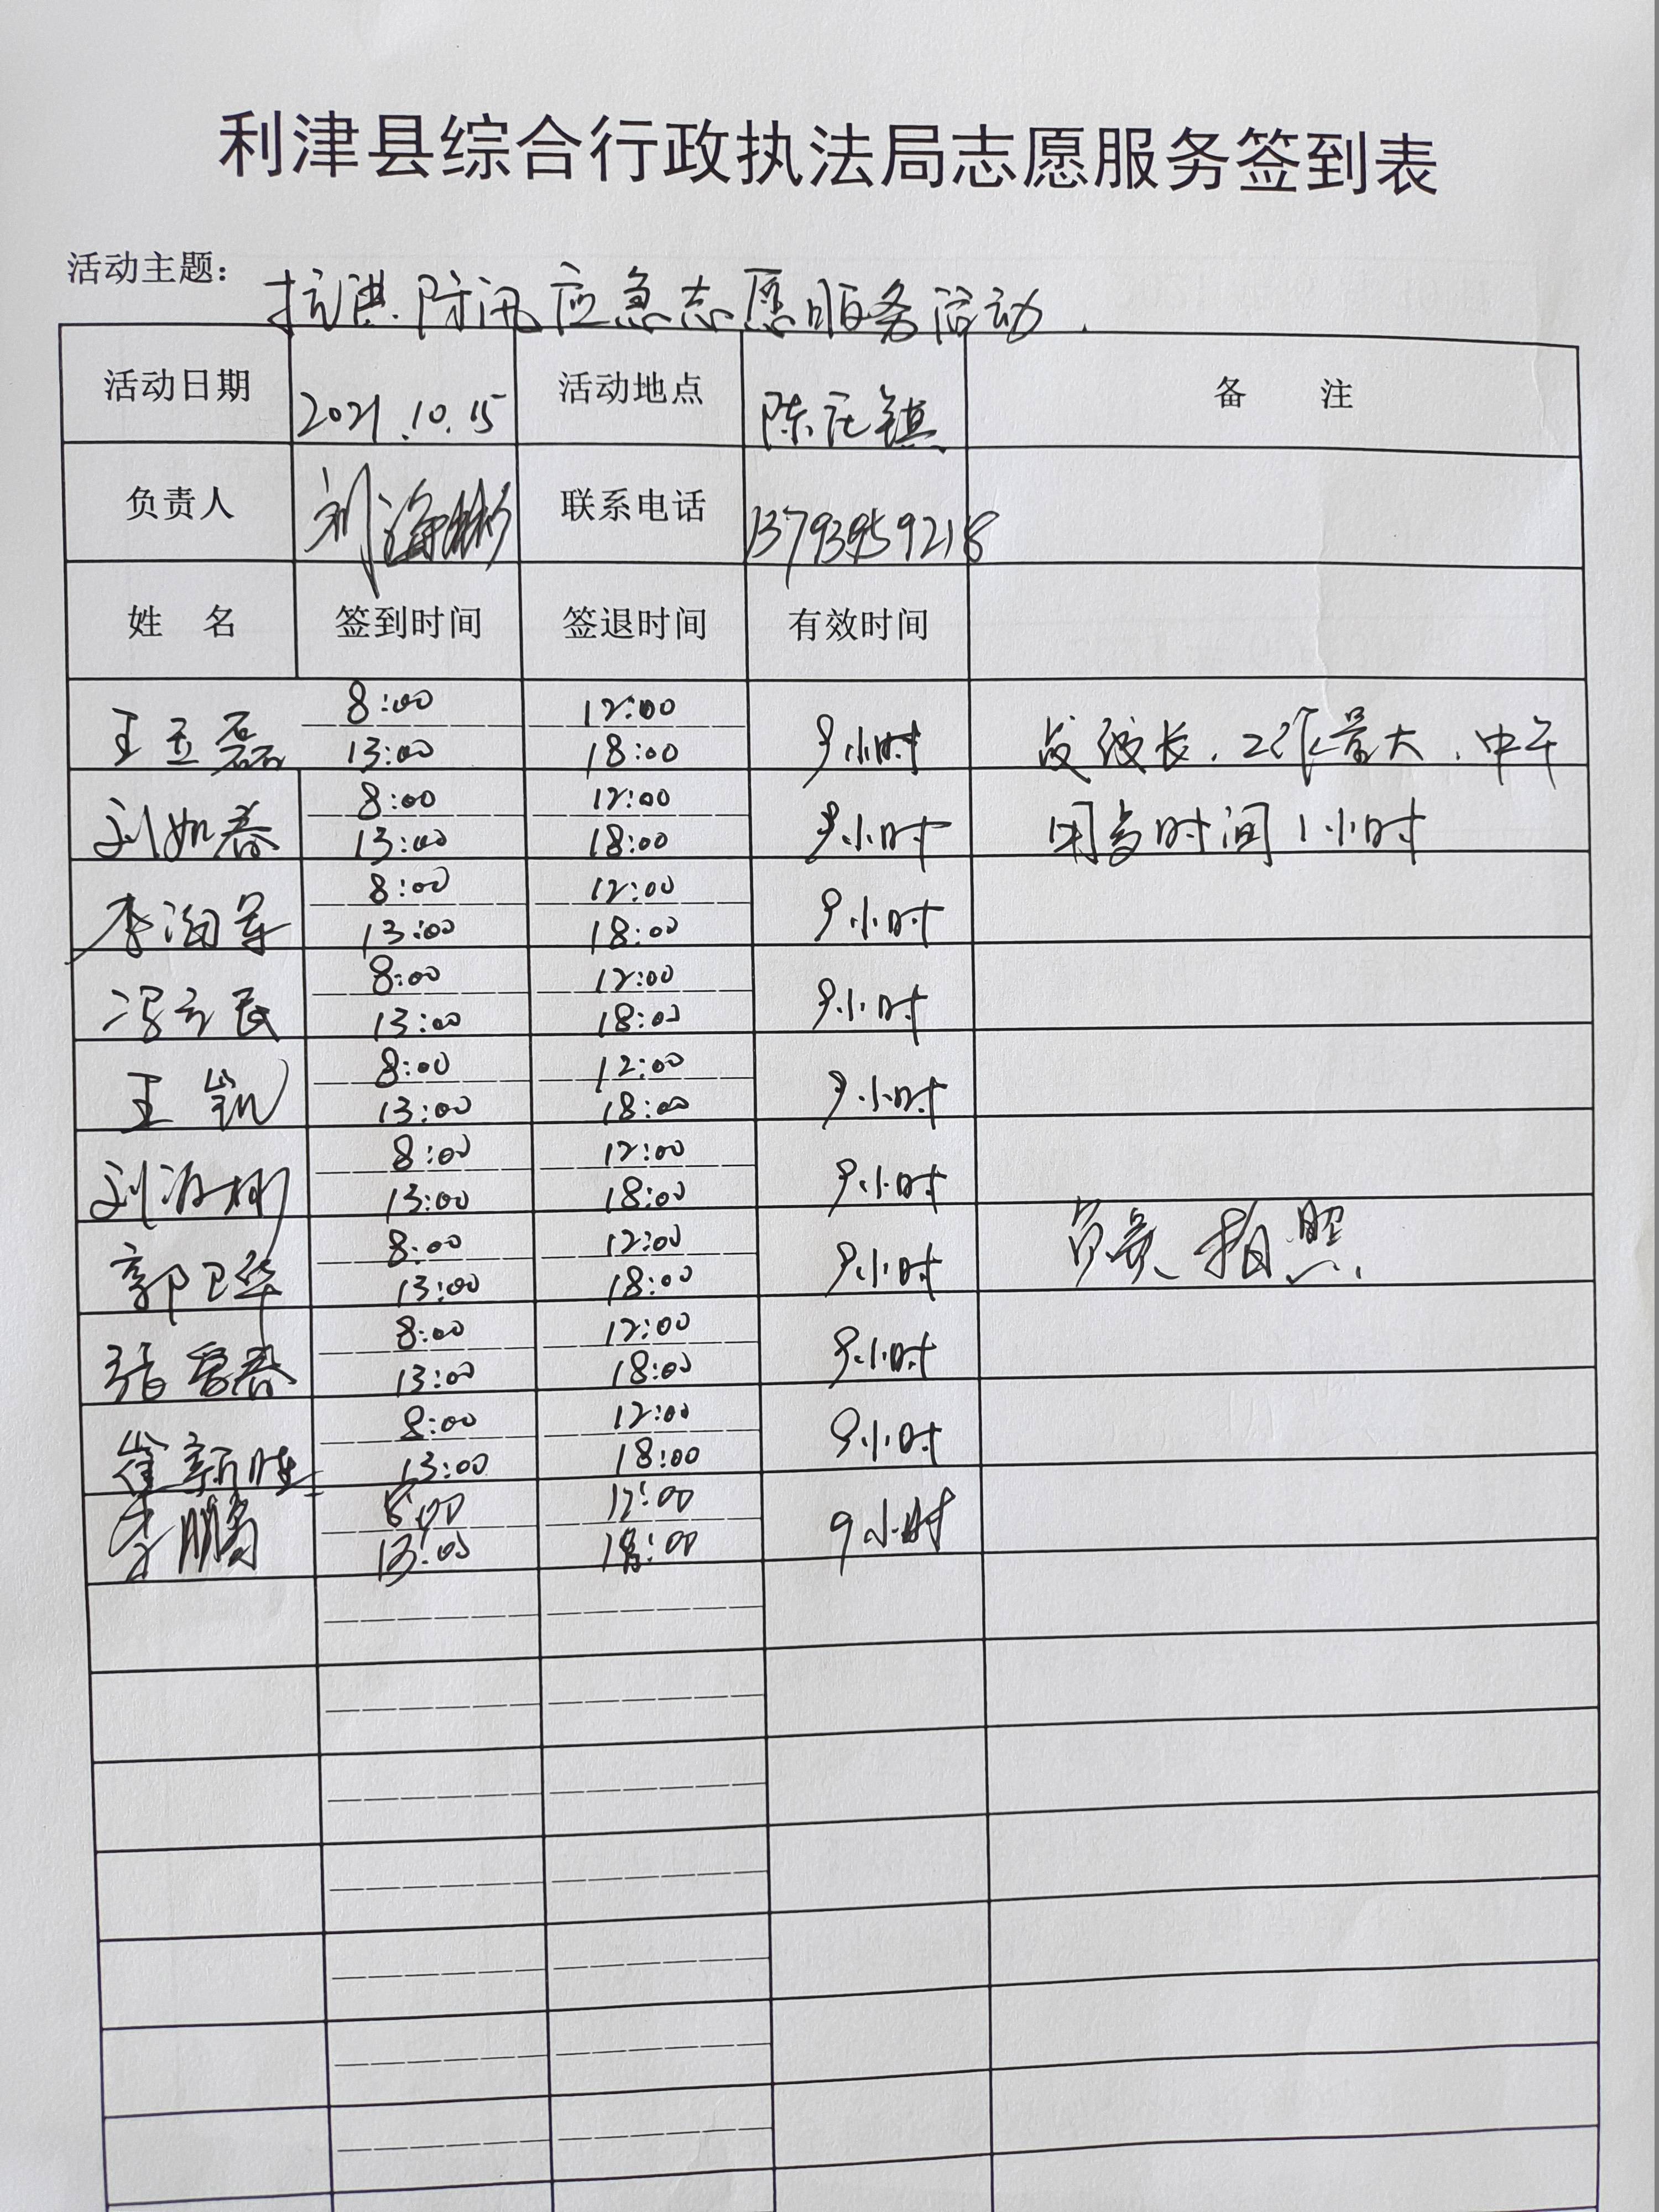 利津县综合行政执法局志愿服务签到表
活动主题: 抗洪防汛应急志愿服务活动.
活动日期 2021.10.15 活动地点 陈庄镇 备 注
负责人 刘海彬 联系电话 13793959218
姓 名 签到时间 签退时间 有效时间
8:00 12:00
王玉磊 13:00 18:00 9小时 战线长.工作量大.中午
8:00 12:00
刘如春 13:00 18:00 9小时 用餐时间1小时
8:00 12:00
李海军 13:00 18:00 9小时
8:00 12:00
冯立民 13:00 18:00 9小时
8:00 12:00
王 13:00 18:00 9小时
8:00 12:00
刘海彬 13:00 18:00 9小时
8:00 12:00
郭卫华 13:00 18:00 9小时 负责拍照.
8:00 12:00
张春 13:00 18:00 9小时
8:00 12:00
崔新胜 13:00 18:00 9小时
8:00 12:00
李鹏 13:00 18:00 9小时